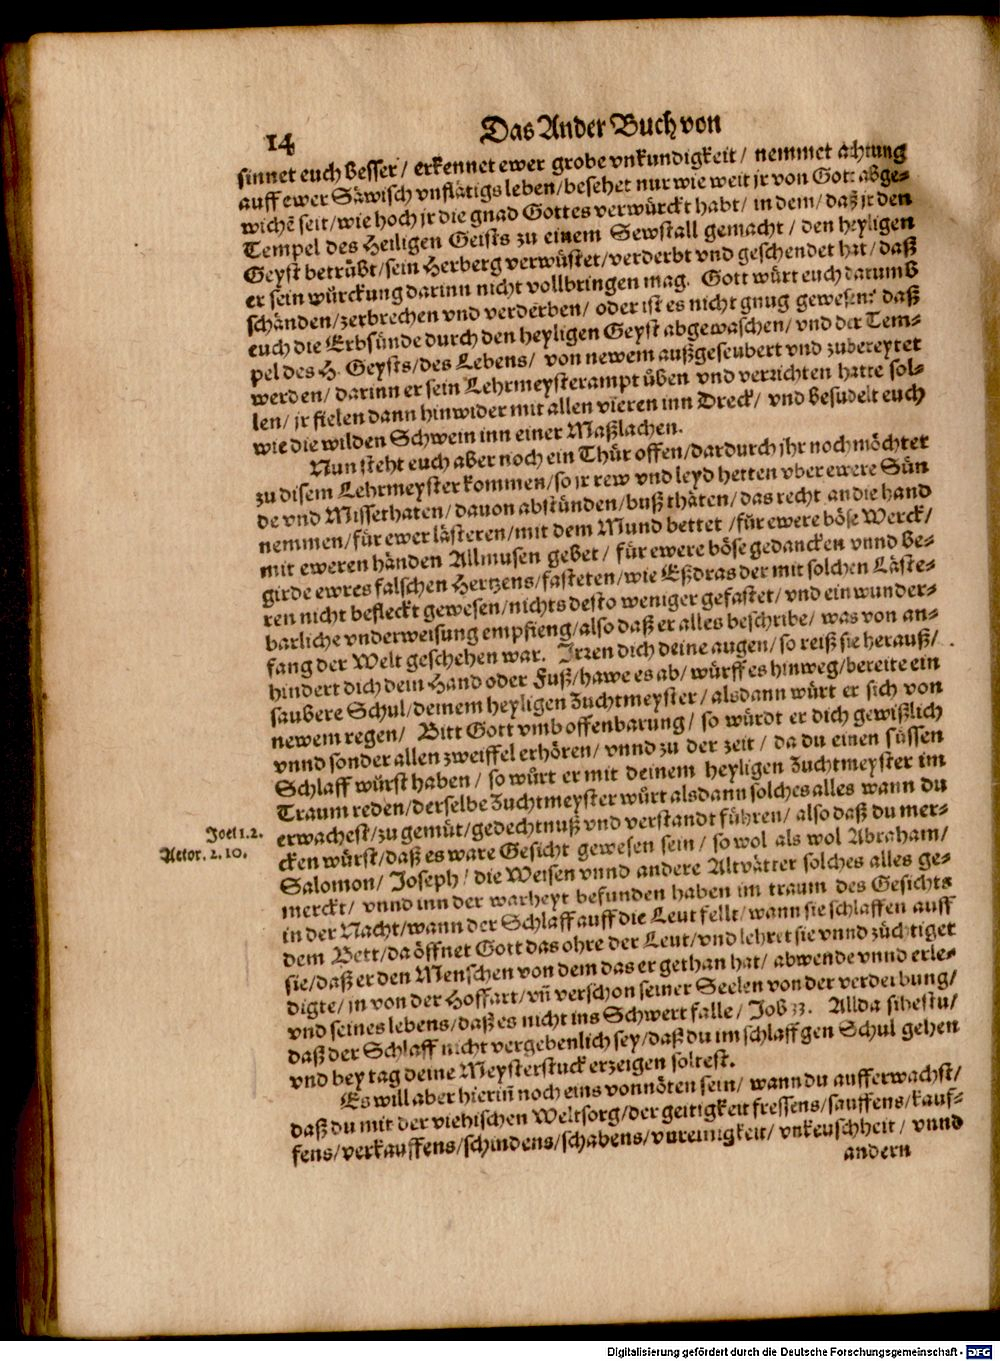 14
Das Ander Buch von
sinnet euch besser / erkennet ewer grobe vnkundigkeit / nemmet achtung
auff ewer Säwisch vnflätigs leben / besehet nur wie weit jr von Gott abge-
wichē seit / wie hoch jr die gnad Gottes verwürckt habt / in dem / daß jr den
Tempel des Heiligen Geists zu einem Sewstall gemacht / den heyligen
Geyst betrübt / sein Herberg verwüstet / verderbt vnd geschendet hat / daß
er sein würckung darinn nicht vollbringen mag. Gott würt euch darumb
schänden / zerbrechen vnd verderben / oder ist es nicht gnug gewesen? daß
euch die Erbsünde durch den heyligen Geyst abgewaschen / vnd der Tem-
pel des H. Geysts / des Lebens / von newem außgeseubert vnd zubereytet
werden / darinn er sein Lehrmeysterampt üben vnd verrichten hatte sol-
len / jr fielen dann hinwider mit allen vieren inn Dreck / vnd besudelt euch
wie die wilden Schwein inn einer Maßlachen.
Nun steht euch aber noch ein Thür offen / dardurch jhr noch möchtet
zu disem Lehrmeyster kommen / so jr rew vnd leyd hetten vber ewere Sün
de vnd Missethaten / dauon abstünden / buß thäten / das recht an die hand
nemmen / für ewer lästeren / mit dem Mund bettet / für ewere böse Werck /
mit eweren händen Allmusen gebet / für ewere böse gedancken vnnd be-
girde ewres falschen Hertzens / fasteten / wie Eßdras der mit solchen Läste-
ren nicht befleckt gewesen / nichts desto weniger gefastet / vnd ein wunder-
barliche vnderweisung empfieng / also daß er alles beschribe / was von an-
fang der Welt geschehen war. Irren dich deine augen / so reiß sie herauß /
hindert dich dein Hand oder Fuß / hawe es ab / würff es hinweg / bereite ein
saubere Schul / deinem heyligen Zuchtmeyster / alsdann würt er sich von
newem regen / Bitt Gott vmb offenbarung / so würdt er dich gewißlich
vnnd sonder allen zweiffel erhören / vnnd zu der zeit / da du einen süssen
Schlaff würst haben / so würt er mit deinem heyligen Zuchtmeyster im
Traum reden / derselbe Zuchtmeyster würt alsdann solches alles wann du
erwachest / zu gemüt / gedechtnuß vnd verstandt führen / also daß du mer-
Joel 1.2.
cken würst / daß es ware Gesicht gewesen sein / so wol als wol Abraham /
Actor. 2. 10.
Salomon / Joseph / die Weisen vnnd andere Altvätter solches alles ge-
merckt / vnnd inn der warheyt befunden haben im traum des Gesichts
in der Nacht / wann der Schlaff auff die Leut fellt / wann sie schlaffen auff
dem Bett / da öffnet Gott das ohre der Leut / vnd lehret sie vnnd züchtiget
sie / daß er den Menschen von dem das er gethan hat / abwende vnnd erle-
digte / jn von der Hoffart / vñ verschon seiner Seelen von der verderbung /
vnd seines lebens / daß es nicht ins Schwert falle / Job 33. Allda sihestu /
daß der Schlaff nicht vergebenlich sey / daß du im schlaff gen Schul gehen
vnd bey tag deine Meysterstuck erzeigen soltest.
Es will aber hieriñ noch eins vonnöten sein / wann du aufferwachst /
daß du mit der viehischen Weltsorg / der geitigkeit fressens / sauffens / kauf-
fens / verkauffens / schindens / schabens / vnreinigkeit / vnkeuschheit / vnnd
andern
Digitalisierung gefördert durch die Deutsche Forschungsgemeinschaft - DFG